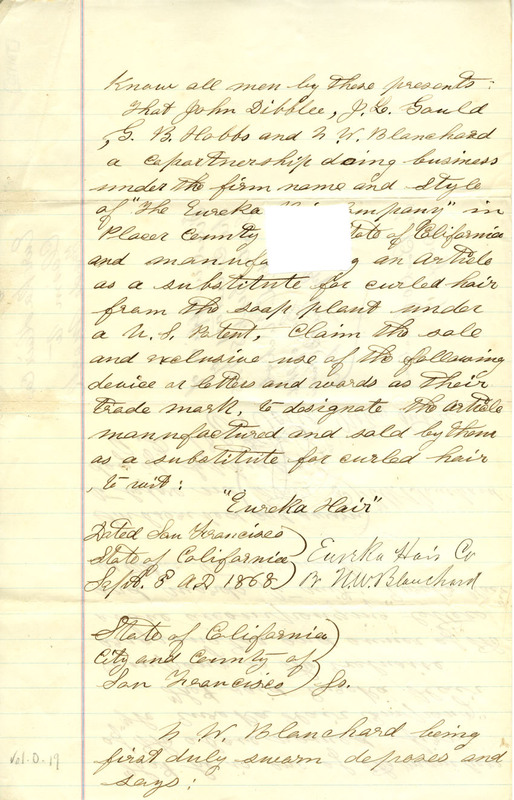 Know all men by these presents:
That John Dibblee, J. L. Gould
, G. B. Hobbs and N W. Blanchard
a copartnership doing business
under the firm name and style
of "The Eureka ompany" in
Placer County tate of California
and manufa g an article
as a substitute for curled hair
from the soap plant under
a U. S. Patent, claim the sole
and exclusive use of the following
device or letters and words as their
trade mark, to designate the article
manufactured and sold by them
as a substitute for curled hair
, to wit:
"Eureka Hair"
Dated San Francisco
State of California
Sept. 8 A.D 1868
Eureka Hair Co
Br N.W. Blanchard
State of California
City and County of
San Francisco Ss.
N W. Blanchard being
first duly sworn deposes and
says:
Vol. D-19